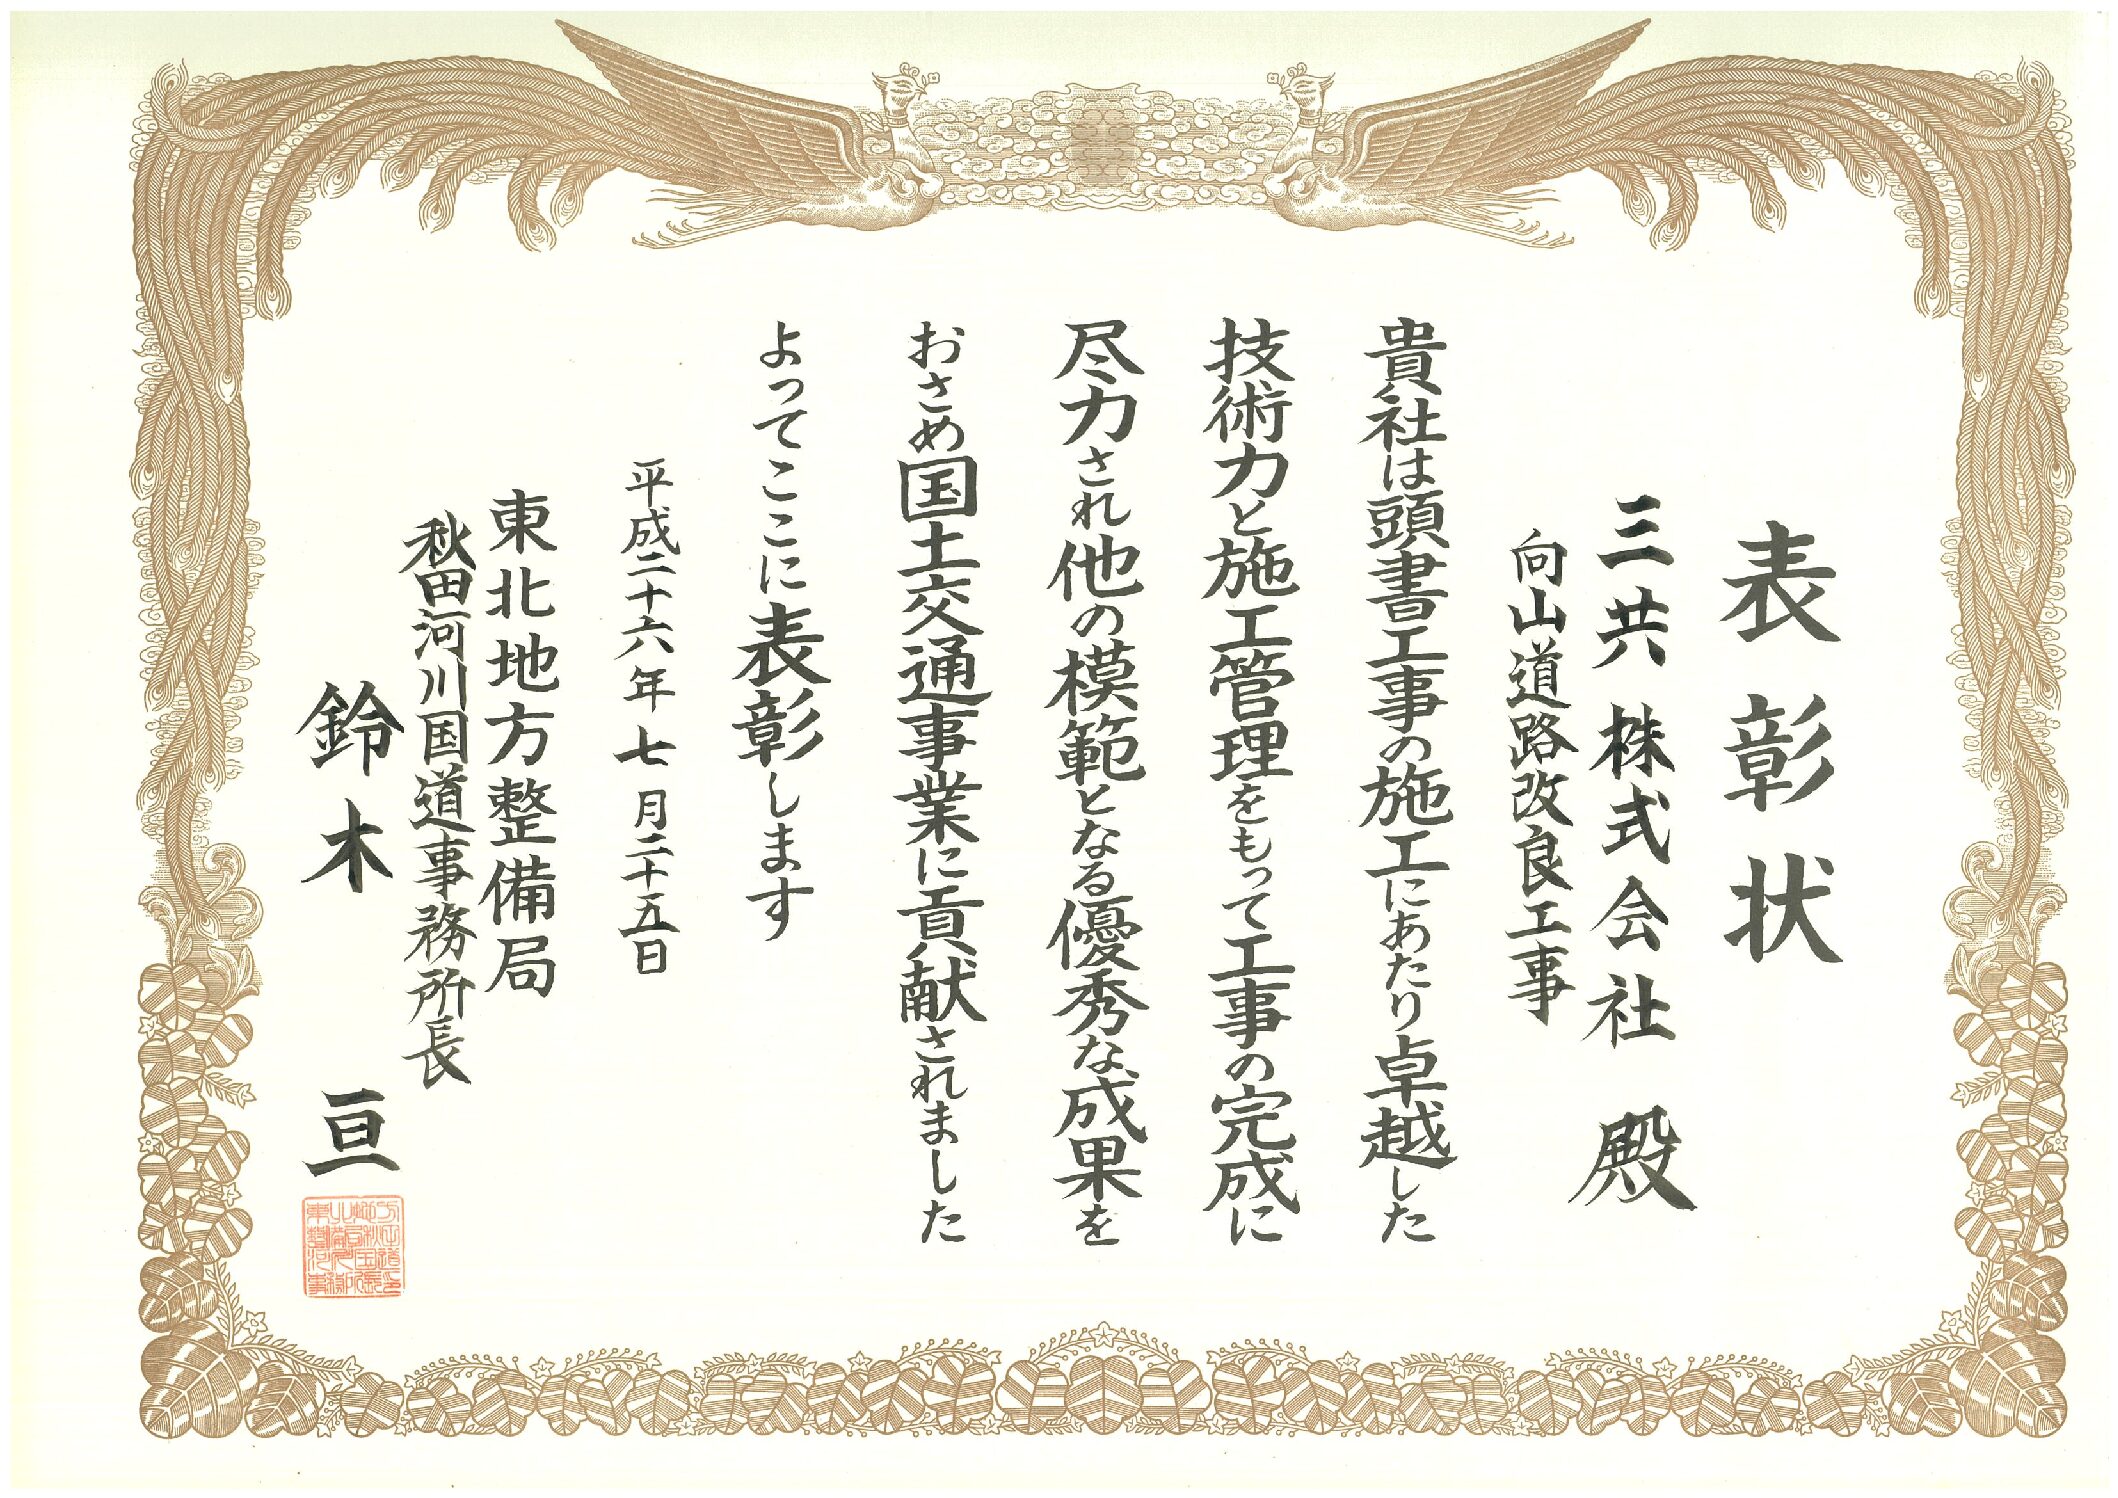 表彰状
三共株式会社 殿
向山道路改良工事
貴社は頭書工事の施工にあたり卓越した
技術力と施工管理をもって工事の完成に
尽力され他の模範となる優秀な成果を
おさめ国土交通事業に貢献されました
よってここに表彰します
平成二十六年七月二十五日
東北地方整備局
秋田河川国道事務所長
鈴木 亘